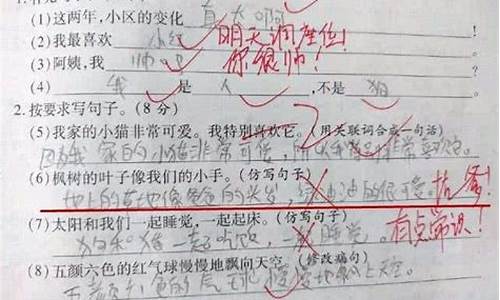 (1)这两年,小区的变化 真大啊
(2)我最喜欢 小红 明天调座位!
(3)阿姨,我 帅吗 你很帅!
(4) 我 是 人 ,不是 狗
2.按要求写句子。(8分)
(5)我家的小猫非常可爱。我特别喜欢它。(用关联词合成一句话)
因为我家的小猫非常可爱,所以我特别非常喜欢它。
(6)枫树的叶子像我们的小手。(仿写句子)
地上的草地像爸爸的头发,绿油油的很可爱。
(7)太阳和我们一起睡觉,一起起床。(仿写句子) 有点常识!
狗和猪一起吃饭,一起睡觉。
(8)五颜六色的红气球慢慢地飘向天空。(修改病句)
五颜六色的气球慢慢地飘上天空。